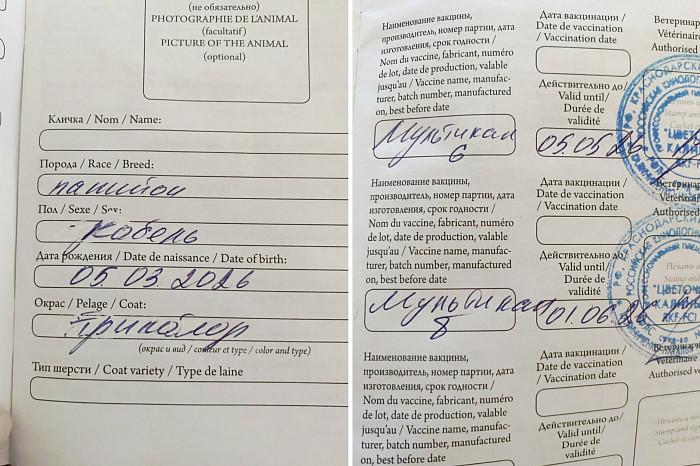 (не обязательно)
PHOTOGRAPHIE DE L'ANIMAL
(facultatif)
PICTURE OF THE ANIMAL
(optional)
Кличка / Nom / Name:
Порода / Race / Breed:
папийон
Пол / Sexe / Sex:
кобель
Дата рождения / Date de naissance / Date of birth:
05.03.2026
Окрас / Pelage / Coat:
триколор
(окрас и вид / couleur et type / color and type)
Тип шерсти / Coat variety / Type de laine
Наименование вакцины,
производитель, номер партии, дата
изготовления, срок годности /
Nom du vaccine, fabricant, numéro
de lot, date de production, valable
jusqu'au / Vaccine name, manufac-
turer, batch number, manufactured
on, best before date
Мультикан
6
Дата вакцинации /
Date de vaccination
/ Vaccination date
Действительно до/
Valid until/
Durée de
validité
05.05.26
Ветеринар
Vétérinaire
Authorised
Наименование вакцины,
производитель, номер партии, дата
изготовления, срок годности /
Nom du vaccine, fabricant, numéro
de lot, date de production, valable
jusqu'au / Vaccine name, manufac-
turer, batch number, manufactured
on, best before date
Мультикан
8
Дата вакцинации /
Date de vaccination
/ Vaccination date
Действительно до/
Valid until/
Durée de
validité
01.06.26
Ветеринар
Vétérinaire
Authorised
"ЦВЕТОЧ
КАЛИНИ
RKF-FCI
Наименование вакцины,
производитель, номер партии, дата
изготовления, срок годности /
Nom du vaccine, fabricant, numéro
de lot, date de production, valable
jusqu'au / Vaccine name, manufac-
turer, batch number, manufactured
on, best before date
Дата вакцинации /
Date de vaccination
/ Vaccination date
Действительно до/
Valid until/
Durée de
validité
Authorised vet